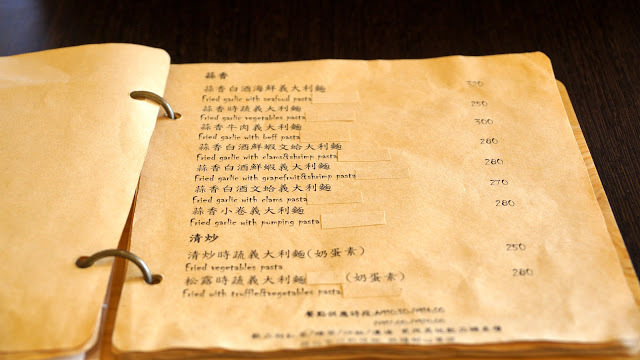 蒜香
蒜香白酒海鮮義大利麵 320
Fried garlic with seafood pasta
蒜香時蔬義大利麵 250
Fried garlic vegetables pasta
蒜香牛肉義大利麵 300
Fried garlic with beff pasta
蒜香白酒鮮蝦文蛤大利麵 280
Fried garlic with clams&shrimp pasta
蒜香白酒鮮蝦義大利麵 280
Fried garlic with grapefruit&shrimp pasta
蒜香白酒文蛤義大利麵 270
Fried garlic with clams pasta
蒜香小卷義大利麵 280
Fried garlic with pumping pasta
清炒
清炒時蔬義大利麵(奶蛋素) 250
Fried vegetables pasta
松露時蔬義大利麵 (奶蛋素) 280
Fried with truffle&vegetables pasta
餐點供應時段